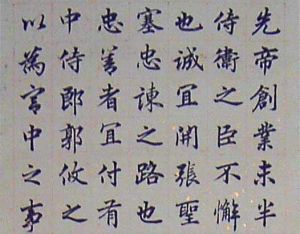 先帝創業未半
侍衛之臣不懈
也誠宜開張聖
塞忠諫之路也
忠善者宜付有
中侍郎郭攸之
以為宮中之事